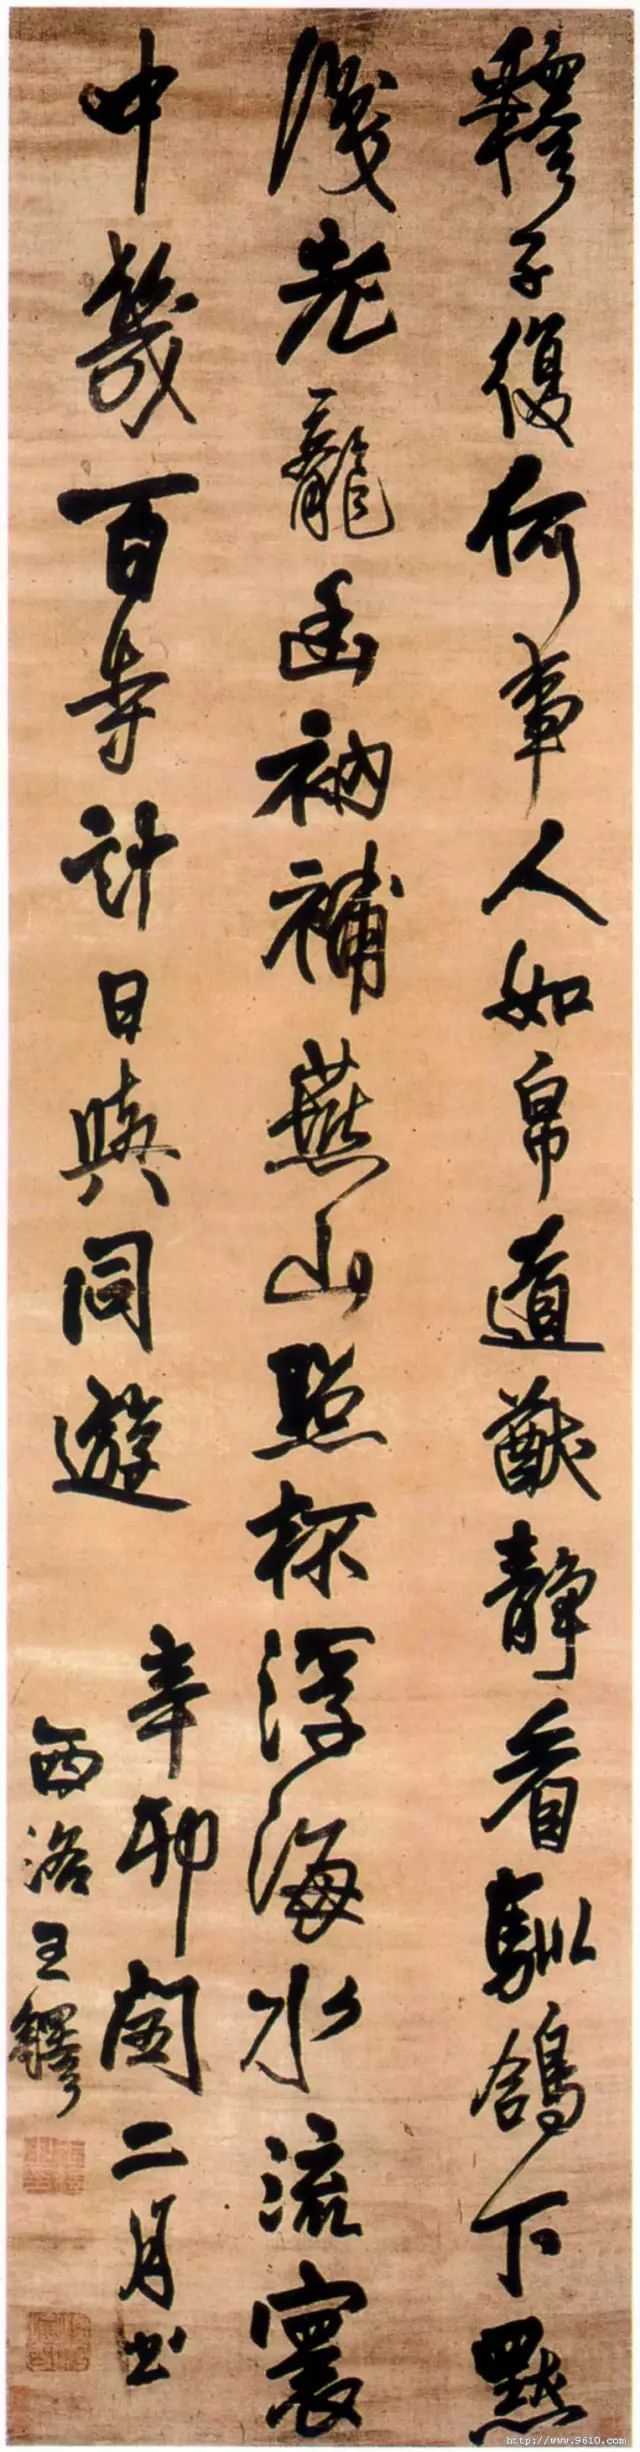 釋子復何事人如帛道猷靜看馴鴿下默
識老龍幽衲補燕山照杯浮海水流寰
中幾百寺計日與同遊
辛卯閏二月書
西洛王鐸
http://www.9610.com